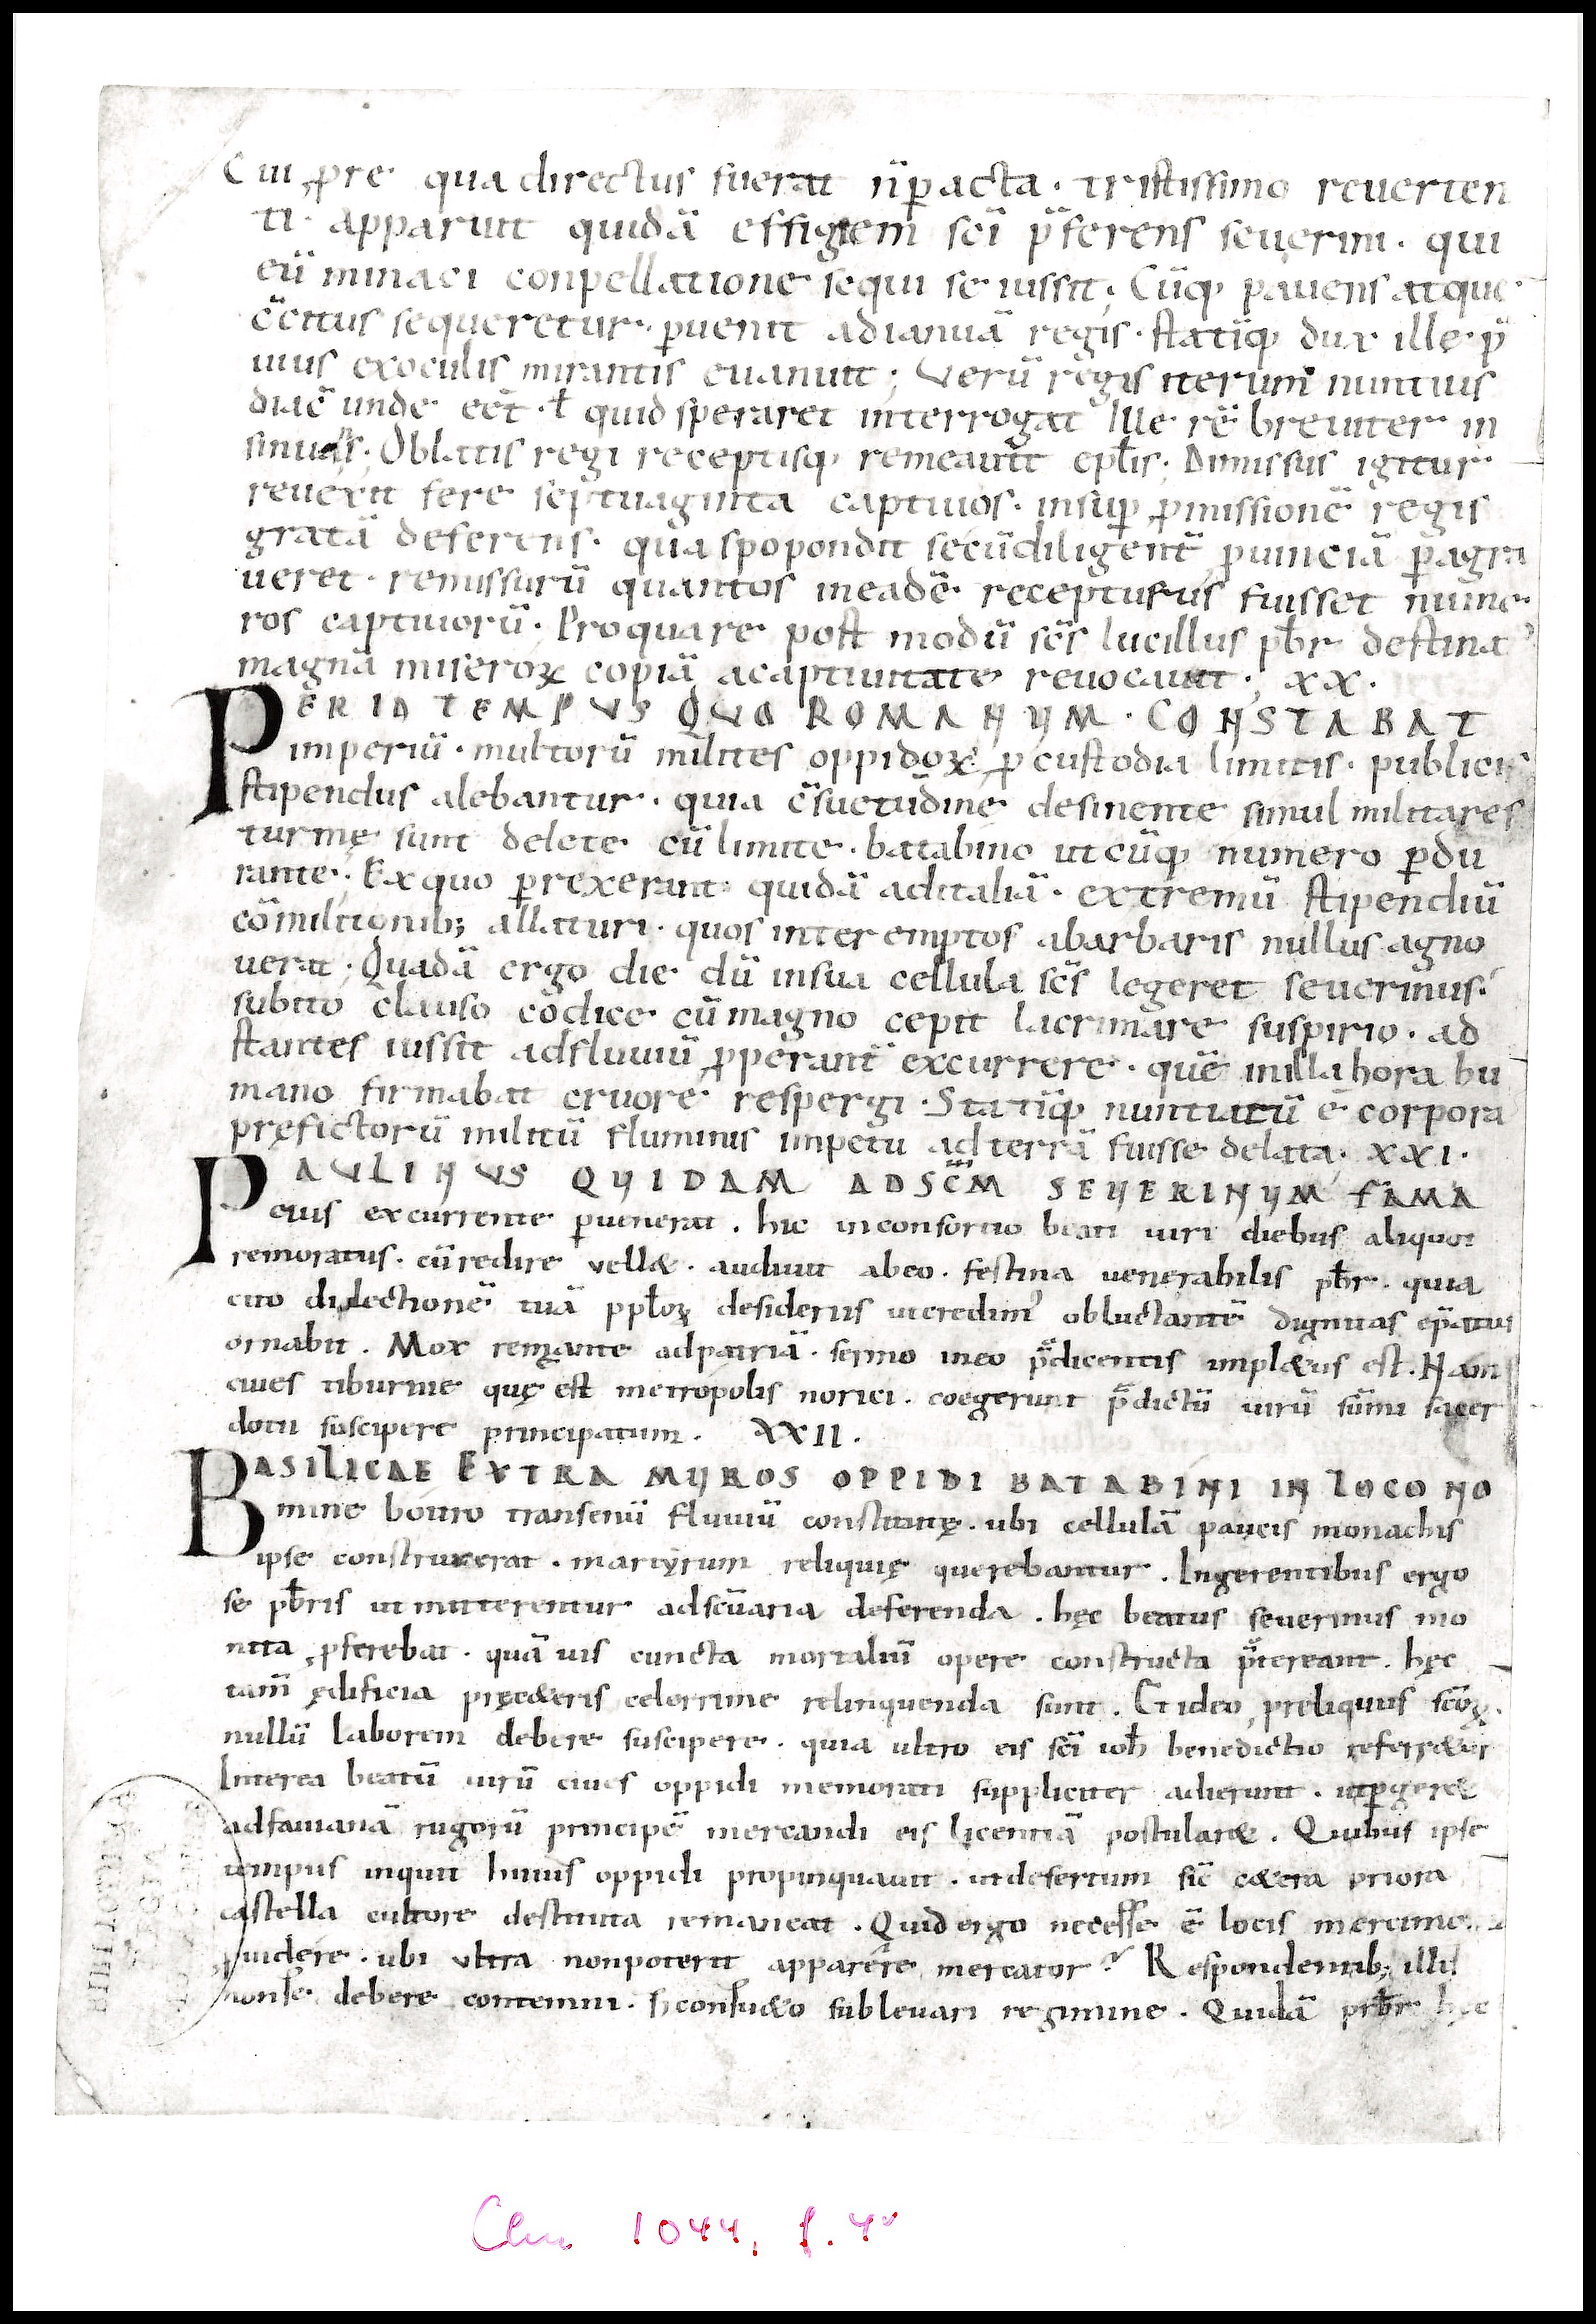 Cui ꝓ re qua directus fuerat ñ pacta · tristissimo reuerten
ti · apparuit quidã effigiem sc̃i p̃ferens seuerini · qui
eũ minaci conpellatione sequi se iussit; Cũq; pauens atque
c̃citus sequeretur · ꝑuenit ad ianuã regis · statĩq; dux ille p̃
uius ex oculis mirantis euanuit; Verũ regis iterum nuntius
diac̃ unde eẽt · ł quid speraret interrogat Ille rẽ breuiter in
sinuans; Oblatis regi receptisq; remeauit epłis; Dimissus igitur
reuexit fere septuaginta captiuos · insuꝑ ꝓmissionẽ regis
gratã deferens · qua spopondit se cũ diligent̃ ꝓuinciã ꝑagra
ueret · remissurũ quantos in eadẽ recepturus fuisset nume
ros captiuorũ · Pro qua re post modũ sc̃s lucillus pb̃r destinat᾿
magnã miseroꝝ copiã a captiuitate reuocauit; XX ·
PER ID TEMPVS QVO ROMANVM · CONSTABAT
imperiũ · multorũ milites oppidoꝝ ꝓ custodia limitis · publicis
stipendiis alebantur · qua c̃suetudine desinente simul militares
turmę sunt delete cũ limite · batabino utcũq; numero ꝑdu
rante; Ex quo ꝑrexerant quidã ad italiã · extremũ stipendiũ
cõmilitionib; allaturi · quos interemptos a barbaris nullus agno
uerat; Quadã ergo die dũ in sua cellula sc̃s legeret seuerinus ·
subito clauso codice cũ magno cepit lacrimare suspirio · ad
stantes iussit ad fluuiũ ꝓperant̃ excurrere · quẽ in illa hora hu
mano firmabat cruore respergi · Statĩq; nuntiatũ ẽ corpora
pręfictorũ militũ fluminis impetu ad terrã fuisse delata · XXI ·
PAVLINVS QVIDAM AD SC̃M SEVERINVM FAMA
eius excurrente ꝑuenerat · hic in consortio beati uiri diebus aliquot
remoratus · cũ redire uell& · audiuit ab eo · festina uenerabilis pb̃r · quia
cito dilectionẽ tuã ppłoꝝ desideriis ut credim᾿ obluctantẽ dignitas ep̃atus
ornabit · Mox remeante ad patriã · sermo in eo p̃dicentis impl&us est · Nam
ciues tiburnie quę est metropolis norici · coegerunt p̃dictũ uirũ sũmi sacer
dotii suscipere principatum · XXII ·
BASILICAE EXTRA MVROS OPPIDI BATABINI IN LOCO NO
mine boitro trans enũ fluuiũ constitutę · ubi cellulã paucis monachis
ipse construxerat · martyrum reliquię querebantur · Ingerentibus ergo
se pb̃ris ut mitterentur ad sc̃uaria deferenda · hęc beatus seuerinus mo
nita ꝓferebat · quãuis cuncta mortaliũ opere constructa p̃tereant · hęc
tam̃ ędificia pręc&eris celerrime relinquenda sunt · Et ideo ꝓ reliquiis sc̃oꝝ ·
nullũ laborem debere suscipere · quia ultro eis sc̃i ioħ benedictio referr&ur
Interea beatũ uirũ ciues oppidi memorati suppliciter adierunt · ut ꝑger&
ad fauianã rugorũ principẽ mercandi eis licentiã postular& · Quibus ipse
tempus inquit huius oppidi propinquauit · ut desertum sic̃ c&era priora
castella cultore destituta remaneat · Quid ergo necesse ẽ locis mercimo
ꝓuidere · ubi ultra non poterit apparere mercator? Respondentib; illis
non se debere contemni · s; consu&o subleuari regimine · Quidã prb̃r hęc
Clm 1044, f. 4v